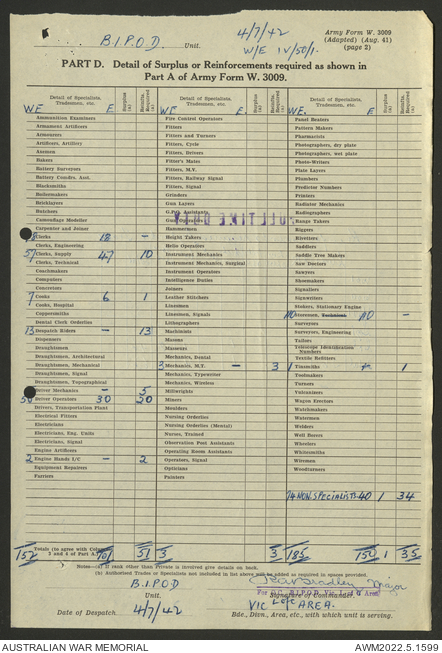 B.I.P.O.D. Unit. 4/7/42 Army Form W. 3009
W/E IV/50/1. (Adapted) (Aug. 41)
(page 2)
PART D. Detail of Surplus or Reinforcements required as shown in
Part A of Army Form W. 3009.
Detail of Specialists, Tradesmen, etc. Surplus (a) Reinfts. Required (a)
W.E. E.
Ammunition Examiners
Armament Artificers
Armourers
Artificers, Artillery
Axemen
Bakers
Battery Surveyors
Battery Comdrs. Asst.
Blacksmiths
Boilermakers
Bricklayers
Butchers
Camouflage Modeller
Carpenter and Joiner
Clerks 18 –
Clerks, Engineering
57 Clerks, Supply 47 10
Clerks, Technical
Coachmakers
Computers
Concretors
7 Cooks 6 1
Cooks, Hospital
Coppersmiths
Dental Clerk Orderlies
13 Despatch Riders – 13
Dispensers
Draughtsmen
Draughtsmen, Architectural
Draughtsmen, Mechanical
Draughtsmen, Signal
Draughtsmen, Topographical
Driver Mechanics – 5
50 Driver Operators 30 20
Drivers, Transportation Plant
Electrical Fitters
Electricians
Electricians, Eng. Units
Electricians, Signal
Engine Artificers
2 Engine Hands I/C – 2
Equipment Repairers
Farriers
Totals (to agree with Cols. 3 and 4 of Part A.)
152 101 51
Detail of Specialists, Tradesmen, etc. Surplus (a) Reinfts. Required (a)
W.E. E.
Fire Control Operators
Fitters
Fitters and Turners
Fitters, Cycle
Fitters, Drivers
Fitter's Mates
Fitters, M.V.
Fitters, Railway Signal
Fitters, Signal
Grinders
Gun Layers
G.P.O. Assistants
FULL TIME DUTY
Hammermen
Height Takers
Helio Operators
Instrument Mechanics
Instrument Mechanics, Surgical
Instrument Operators
Intelligence Duties
Joiners
Leather Stitchers
Linesmen
Linesmen, Signals
Lithographers
Machinists
Masons
Masseurs
Mechanics, Dental
3 Mechanics, M.T. – 3
Mechanics, Typewriter
Mechanics, Wireless
Millwrights
Miners
Moulders
Nursing Orderlies
Nursing Orderlies (Mental)
Nurses, Trained
Observation Post Assistants
Operating Room Assistants
Operators, Signal
Opticians
Painters
3 3
Detail of Specialists, Tradesmen, etc. Surplus (a) Reinfts. Required (a)
W.E. E.
Panel Beaters
Pattern Makers
Pharmacists
Photographers, dry plate
Photographers, wet plate
Photo-Writers
Plate Layers
Plumbers
Predictor Numbers
Printers
Radiator Mechanics
Radiographers
Range Takers
Riggers
Rivetters
Saddlers
Saddle Tree Makers
Saw Doctors
Sawyers
Shoemakers
Signallers
Signwriters
Stokers, Stationary Engine
110 Storemen, Technical 110 –
Surveyors
Surveyors, Engineering
Tailors
Telescope Identification Numbers
Textile Refitters
1 Tinsmiths 1
Toolmakers
Turners
Vulcanizers
Wagon Erectors
Watchmakers
Watermen
Welders
Well Borers
Wheelers
Whitesmiths
Wiremen
Woodturners
74 NON SPECIALISTS 40 1 34
185 150 1 35
Notes—(a) If rank other than Private is involved give details on back.
(b) Authorised Trades or Specialists not included in list above will be added as required in spaces provided.
B.I.P.O.D
Unit.
Major
For O.C. B.I.P.O.D. Vic. L. of C. Area
Signature of Commander
4/7/42
Date of Despatch.
VIC L of C AREA.
Bde., Divn., Area, etc., with which unit is serving.
AUSTRALIAN WAR MEMORIAL AWM2022.5.1599